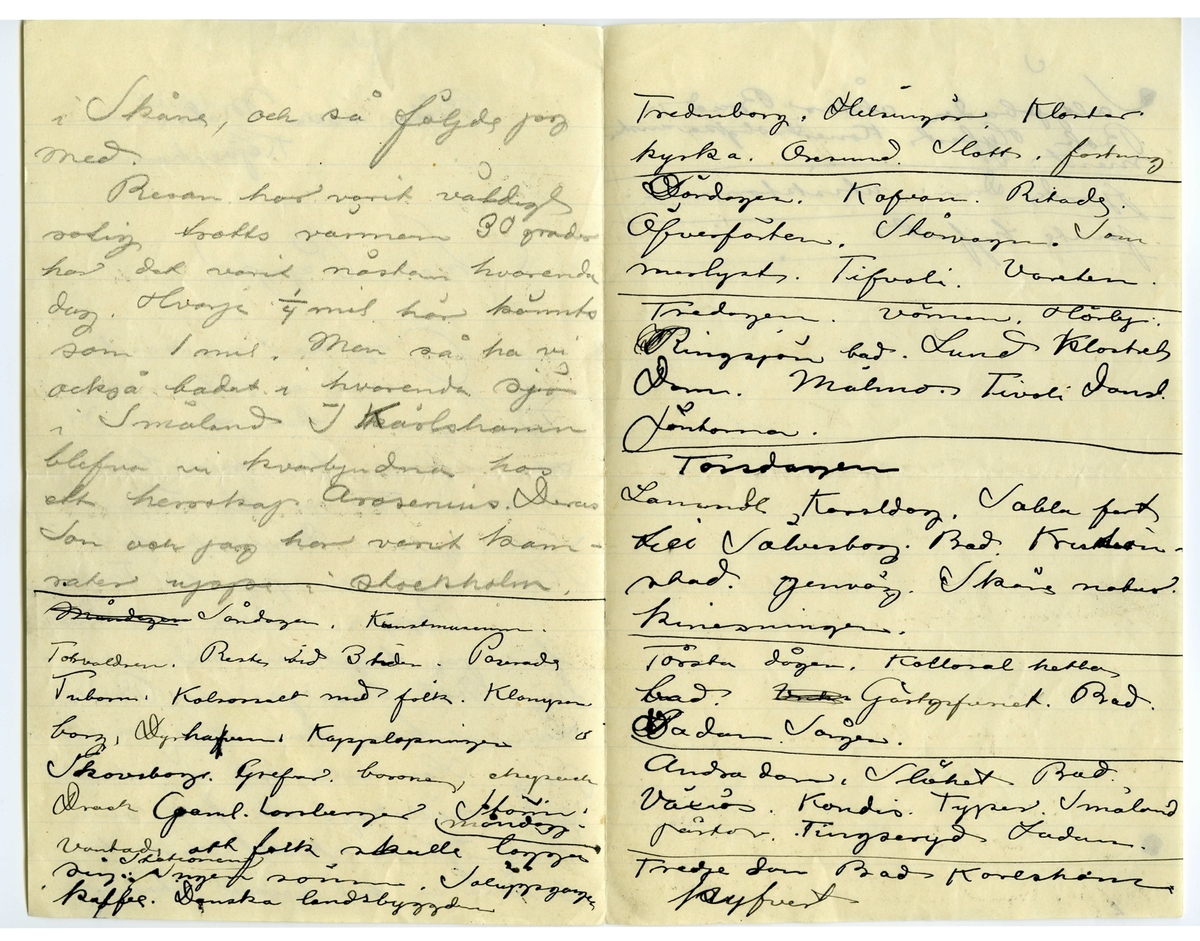 i Skåne, och så följde jag
med.
Resan har varit väldigt
rolig trotts värmen 30 grader
har det varit nästan hvarenda
dag. Hvarje ¼ mil har kännts
som 1 mil. Men så ha vi
också badat i hvarenda sjö
i Småland I Karlshamn
blefvo vi kvarbjudna hos
ett herrskap Arosenius. Deras
Son och jag har varit kam-
rater uppe i Stockholm.
Måndagen Söndagen. Kunstmuseum.
Torvaldsen. Reste vid 3 tiden. Paserade
Tuborn. Kolossalt med folk. Klampen
borg, Dyrhafven. Kapplöpningen
Skovsborg. Grefvar. baroner,
Drack Gaml. Storm.
måndag.
Väntade att folk skulle lägga
sig. Stationen Ingen sömn. Soluppgång
kaffe. Danska landsbygden
Fredenborg. Helsingör. Kloster
kyrka. Öresund. Slott. fästning
Lördagen. Kafven. Ritade.
Öfverfärten. Som
merlyst. Tifvoli. Varieten.
Fredagen. värmen. Hörby.
Ringsjön bad. Lund Klostret
Dom. Malmö. Tivoli Dans.
Jäntorna.
Torsdagen
Karsldorg. Snabba fart
till Sölvesborg. Bad. Kristian-
stad. genväg. Skåne natur.
Första dagen. Kollosal hetta
bad. Gästgifveriet. Bad.
Badare. Sången.
Andra dan. Slöhet Bad.
Växiö. Kondis. Typer. Småland
jäntor. Tingsryd Ladan.
Tredje dan Bad Karlshamn